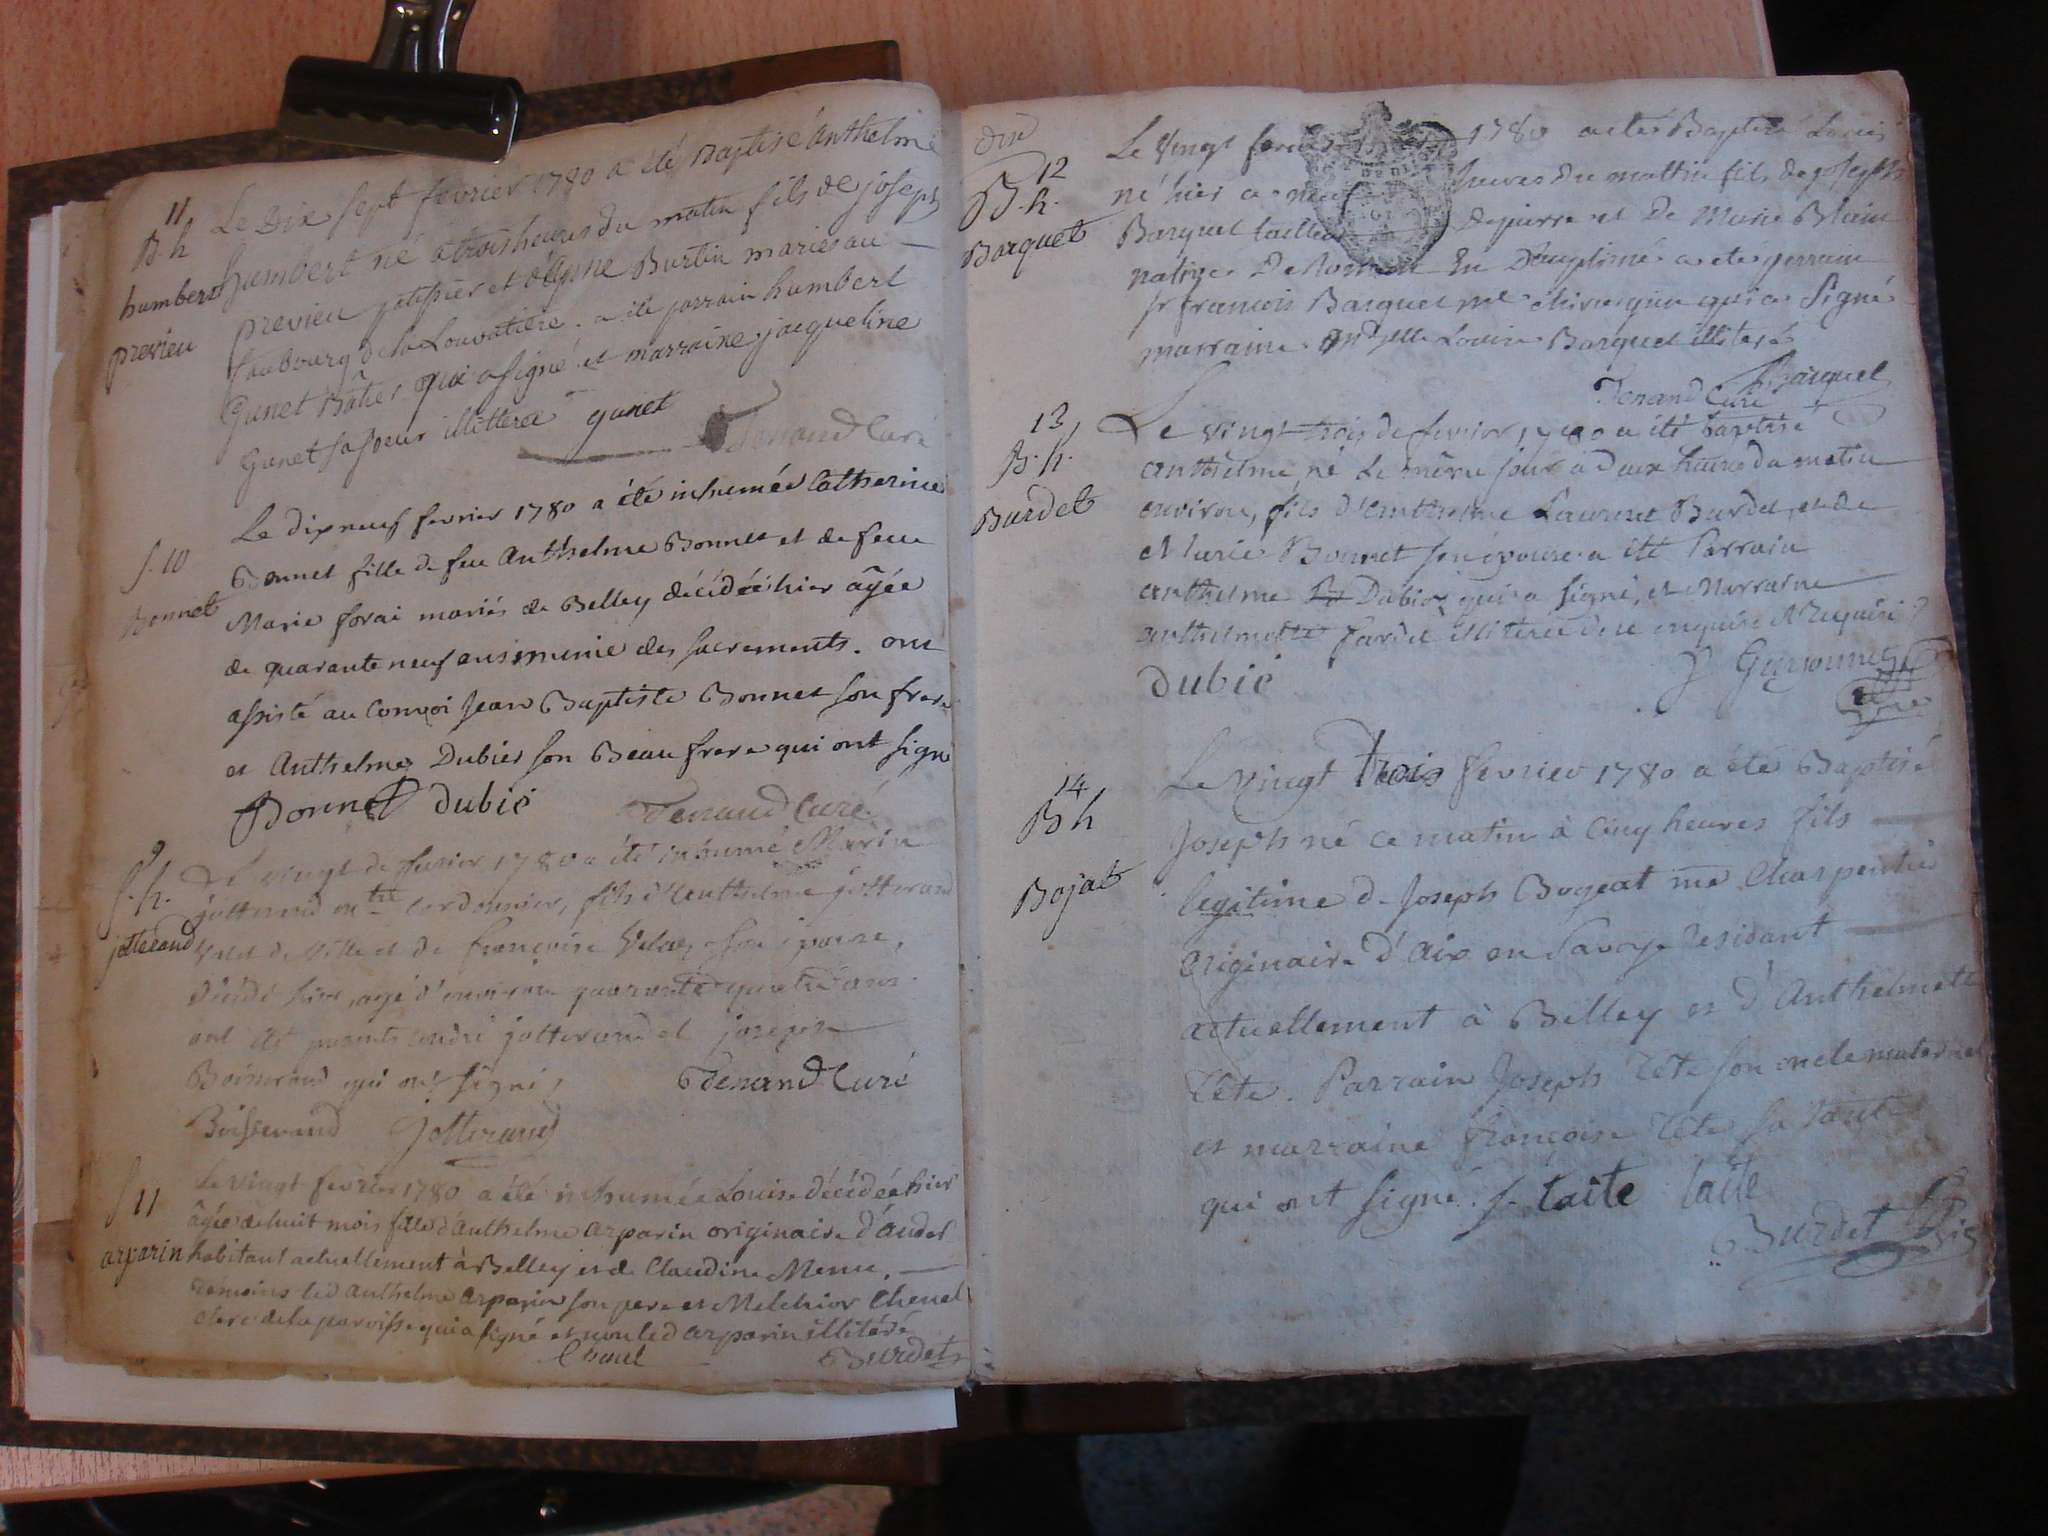 11
B. h
humbert
previeu
Le Dix sept fevrier 1780 a été Baptisé Anthelme
humbert né à trois heures du matin fils de joseph
previeu patissier et d'Anne Burtin mariés au
faubourg de la Louvatiere. a été parrain humbert
Gunet Bâtier qui a signé et marraine jacqueline
Gunet sa soeur illitterée gunet
Tenand Curé
S. 10
Bonnet
Le dix neuf fevrier 1780 a été inhumée Catherine
Bonnet fille de feu Anthelme Bonnet et de feue
Marie forai mariés de Belley décédée hier âgée
de quarante neuf ans munie des sacrements. ont
assisté au Convoi Jean Baptiste Bonnet son frere
et Anthelme Dubier son Beau frere qui ont signé
Bonnet Dubié Tenand Curé
9
S. h.
jotterand
Le vingt de fevrier 1780 a été inhumé
jotterand cordonnier, fils d'Anthelme jotterand
valet de ville et de françoise son epouse,
décédé hier, agé d'environ quarante quatre ans
ont été presents andré jotterand et joseph
Boisserand qui ont signé, Tenand Curé
Boisserand Jotterand
S 11
arparin
Le vingt fevrier 1780 a été inhumée Louise décédée hier
âgée de huit mois fille d'anthelme arparin originaire d'andert
habitant actuellement à Belley et de Claudine Menu.
témoins led anthelme arparin son pere et Melchior Chenel
clerc de la paroisse qui a signé et non led arparin illitéré
Burdet
12
B. h.
Barquet
Le vingt 1780 a eté Baptisé Louis
né hier a neuf heures du mattin fils de joseph
Barquet tailleur de pierre et de Marie
natives De En Dauphiné a eté parrain
sr francois Barquet me chirurgien qui a Signé
marraine mdelle Louise Barquet illiterée
Barquet
Tenand Curé
13
B. h.
Burdet
Le vingt trois de fevrier 1780 a été baptisé
anthelme, né le même jour à deux heures du matin
environ, fils d'anthelme Laurent Burdet, et de
Marie Bonnet son épouse a été Parrain
anthelme Dubier qui a signé, et Marraine
anthelmette illiterée de ce enquise et Requise
Dubié
14
B h
Bojat
Le Vingt trois fevrier 1780 a été Baptisé
Joseph né ce matin à cinq heures fils
legitime de Joseph Bogeat me Charpentier
originaire d'Aix en Savoye residant
actuellement à Belley et d'Anthelmette
Tête. Parrain Joseph Tête son oncle maternel
et marraine françoise Tête sa tante
qui ont signé. f. taite taite
Burdet